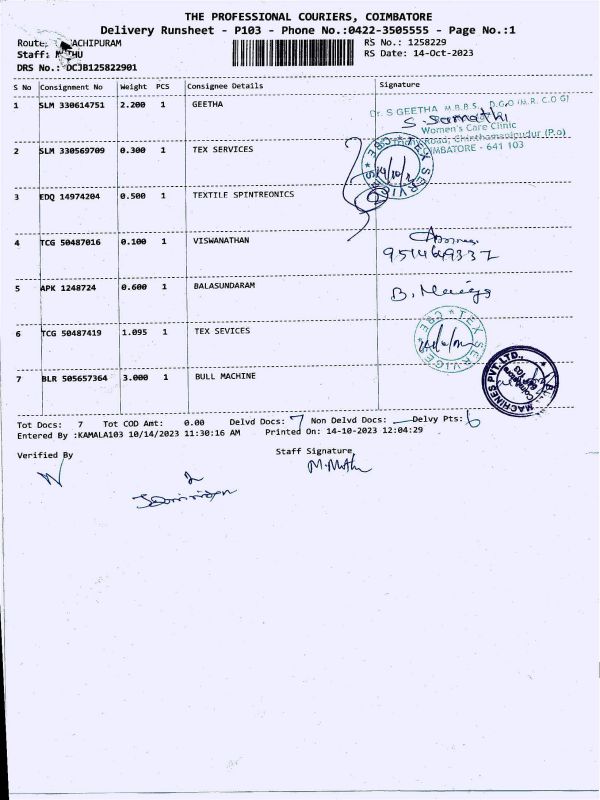 THE PROFESSIONAL COURIERS, COIMBATORE
Delivery Runsheet - P103 - Phone No.:0422-3505555 - Page No.:1
Route: ACHIPURAM
RS No.: 1258229
Staff: M THU
RS Date: 14-Oct-2023
DRS No.: DCJB125822901
S No Consignment No Weight PCS Consignee Details Signature
1 SLM 330614751 2.200 1 GEETHA
Dr. S GEETHA M.B.B.S., D.G.O (M.R.C.O.G)
Women's Care Clinic
Road, (P.o)
COIMBATORE - 641 103
2 SLM 330569709 0.300 1 TEX SERVICES
TEX SERVICES * CBE *
3 EDQ 14974204 0.500 1 TEXTILE SPINTREONICS
4 TCG 50487016 0.100 1 VISWANATHAN
5 APK 1248724 0.600 1 BALASUNDARAM
B.
6 TCG 50487419 1.095 1 TEX SEVICES
TEX SERVICES * CBE *
7 BLR 505657364 3.000 1 BULL MACHINE
BULL MACHINES PVT. LTD.,
Tot Docs: 7 Tot COD Amt: 0.00 Delvd Docs: 7 Non Delvd Docs: — Delvy Pts: 6
Entered By :KAMALA103 10/14/2023 11:30:16 AM Printed On: 14-10-2023 12:04:29
Verified By
Staff Signature
M.Muthu